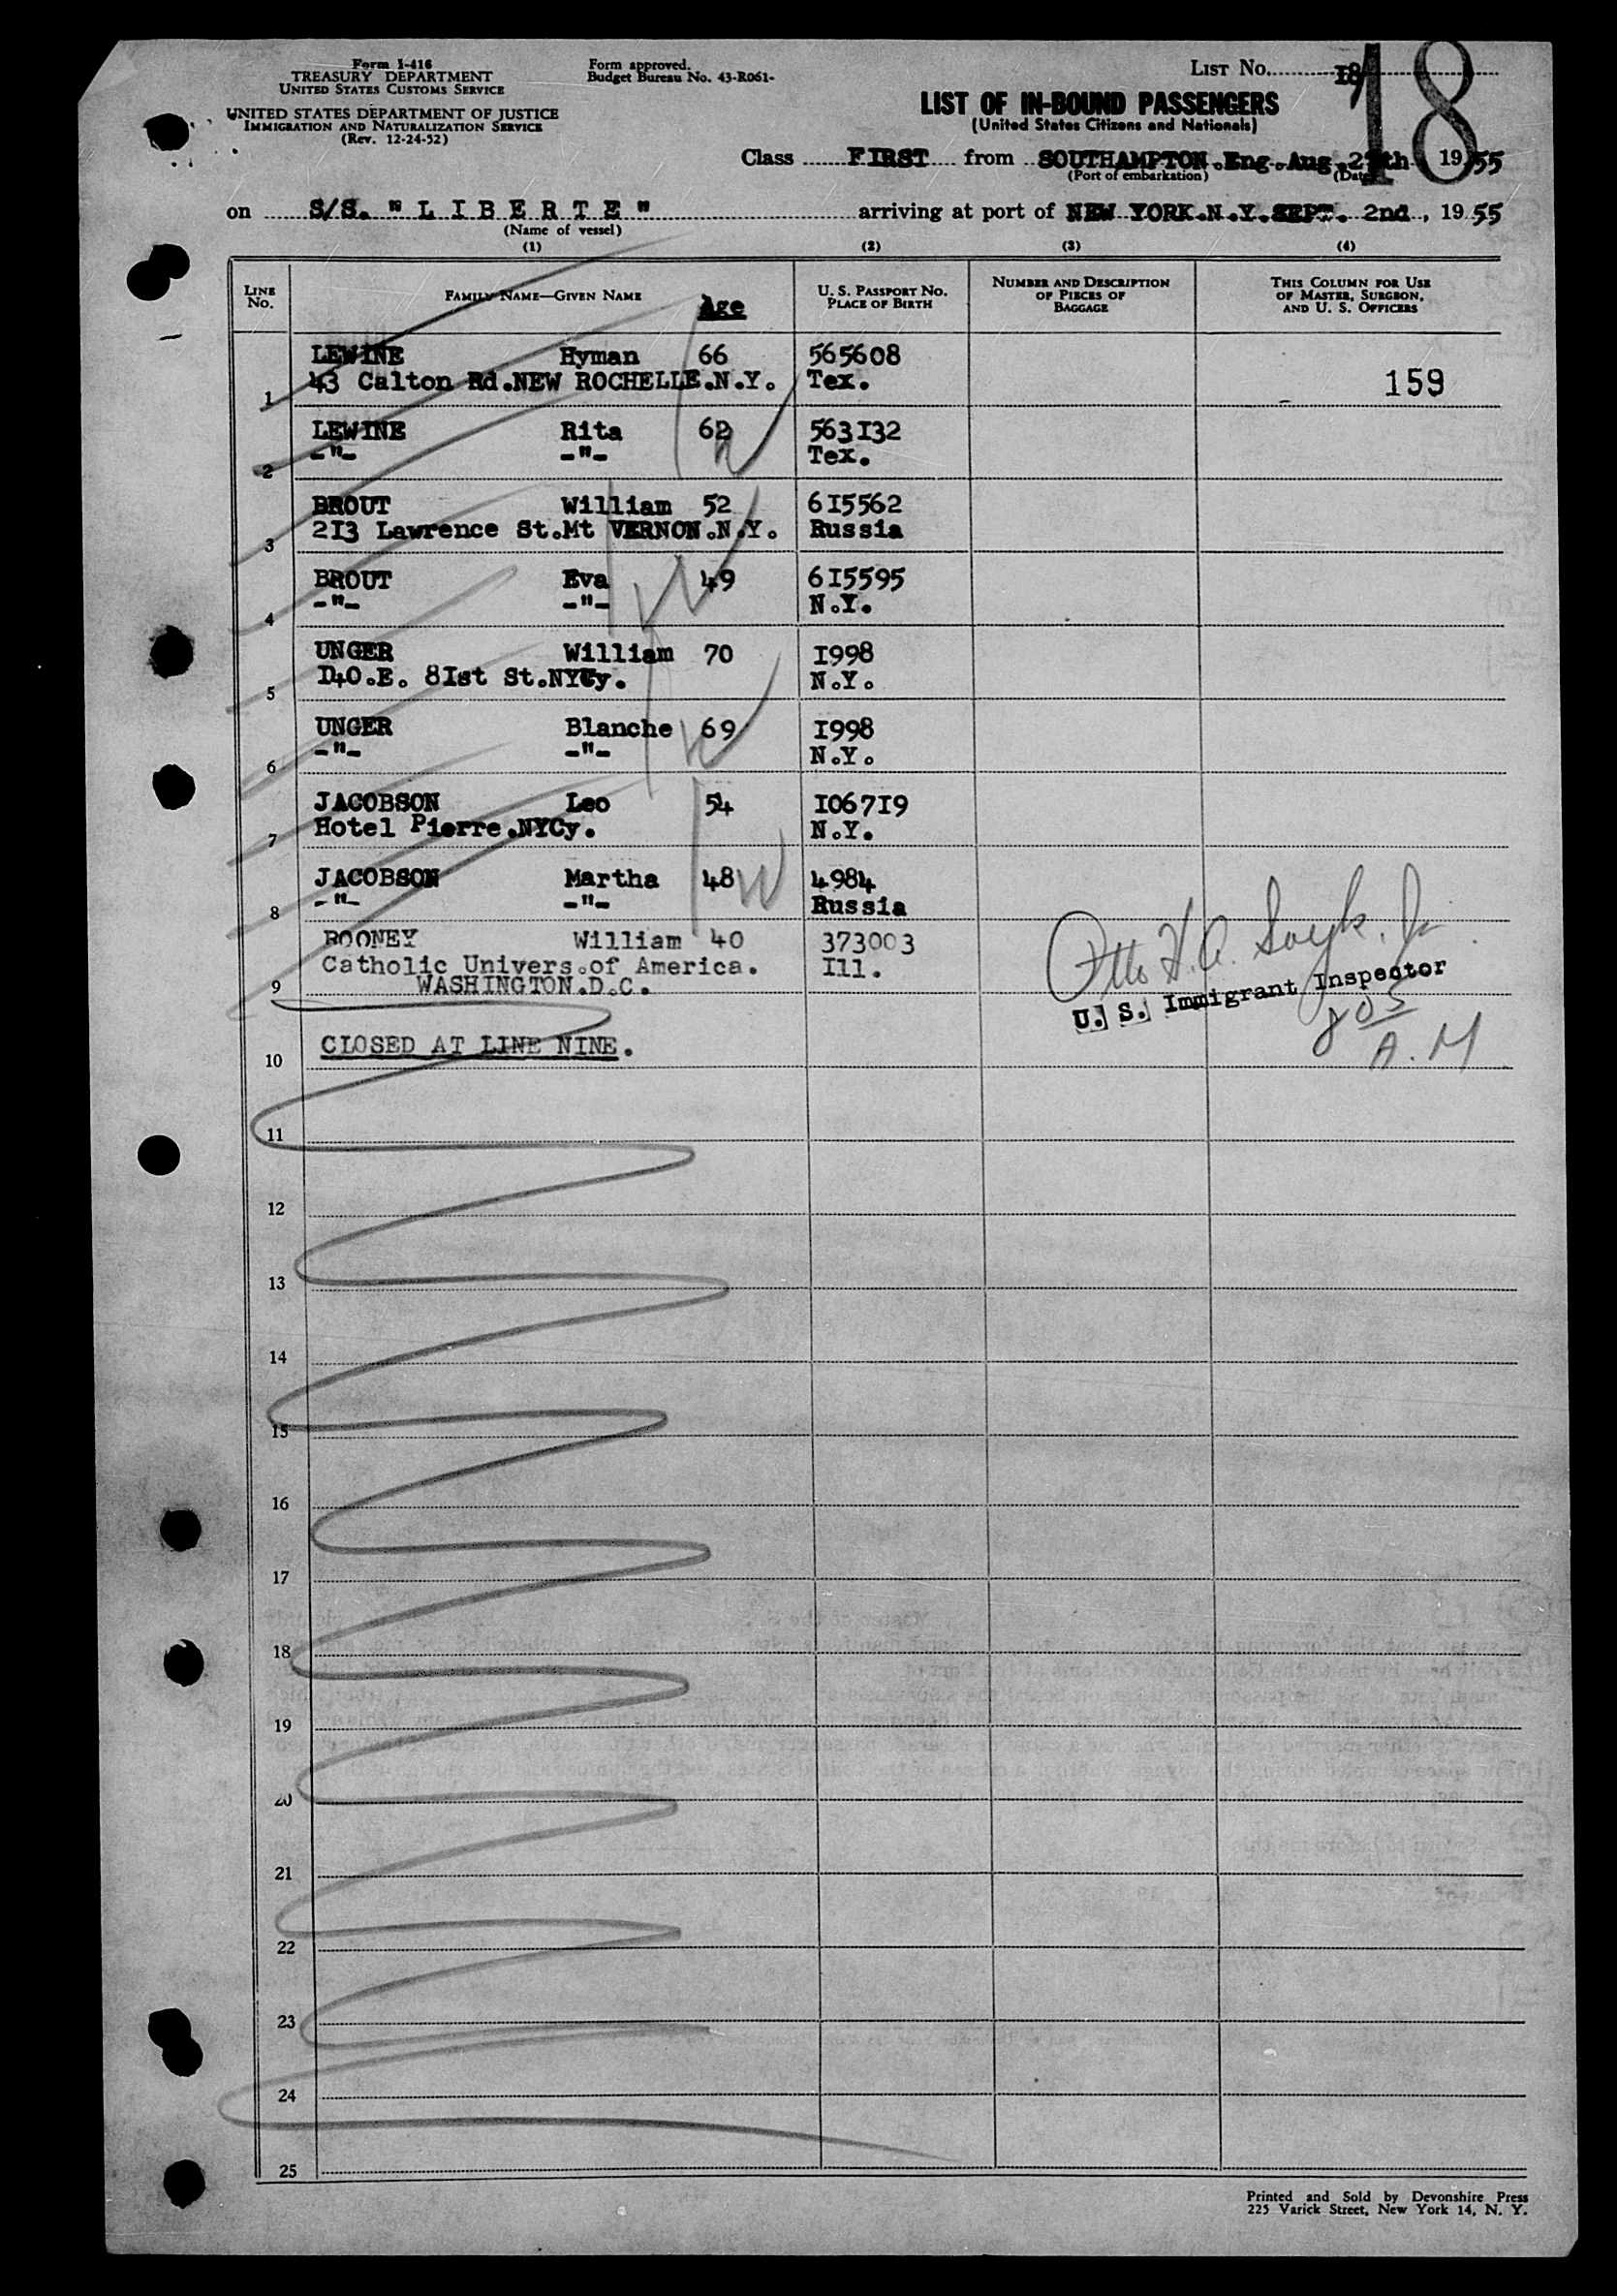 Form I-416
TREASURY DEPARTMENT
UNITED STATES CUSTOMS SERVICE
UNITED STATES DEPARTMENT OF JUSTICE
IMMIGRATION AND NATURALIZATION SERVICE
(Rev. 12-24-52)
Form approved.
Budget Bureau No. 43-R061-
LIST NO. 18
18
LIST OF IN-BOUND PASSENGERS
(United States Citizens and Nationals)
Class FIRST from SOUTHAMPTON.Eng.Aug.2 th 1955
(Port of embarkation) (Date)
on S/S. "LIBERTE" arriving at port of NEW YORK.N.Y.SEPT. 2nd, 1955
(Name of vessel)
(1) (2) (3) (4)
LINE NO. FAMILY NAME—GIVEN NAME Age U. S. PASSPORT NO. PLACE OF BIRTH NUMBER AND DESCRIPTION OF PIECES OF BAGGAGE THIS COLUMN FOR USE OF MASTER, SURGEON, AND U. S. OFFICERS
LEWINE Hyman 66 565608
1 43 Calton Rd.NEW ROCHELLE.N.Y. Tex. 159
LEWINE Rita 62 563I32
2 -"- -"- Tex.
BROUT William 52 6I5562
3 2I3 Lawrence St.Mt VERNON.N.Y. Russia
BROUT Eva 49 6I5595
4 -"- -"- N.Y.
UNGER William 70 I998
5 I40.E. 8Ist St.NYCy. N.Y.
UNGER Blanche 69 I998
6 -"- -"- N.Y.
JACOBSON Leo 54 I067I9
7 Hotel Pierre.NYCy. N.Y.
JACOBSON Martha 48 4984
8 -"- -"- Russia
ROONEY William 40 373003
Catholic Univers.of America. Ill.
9 WASHINGTON.D.C.
Otto H. A.
U. S. Immigrant Inspector
805
A.M
10 CLOSED AT LINE NINE.
11
12
13
14
15
16
17
18
19
20
21
22
23
24
25
Printed and Sold by Devonshire Press
225 Varick Street, New York 14, N. Y.